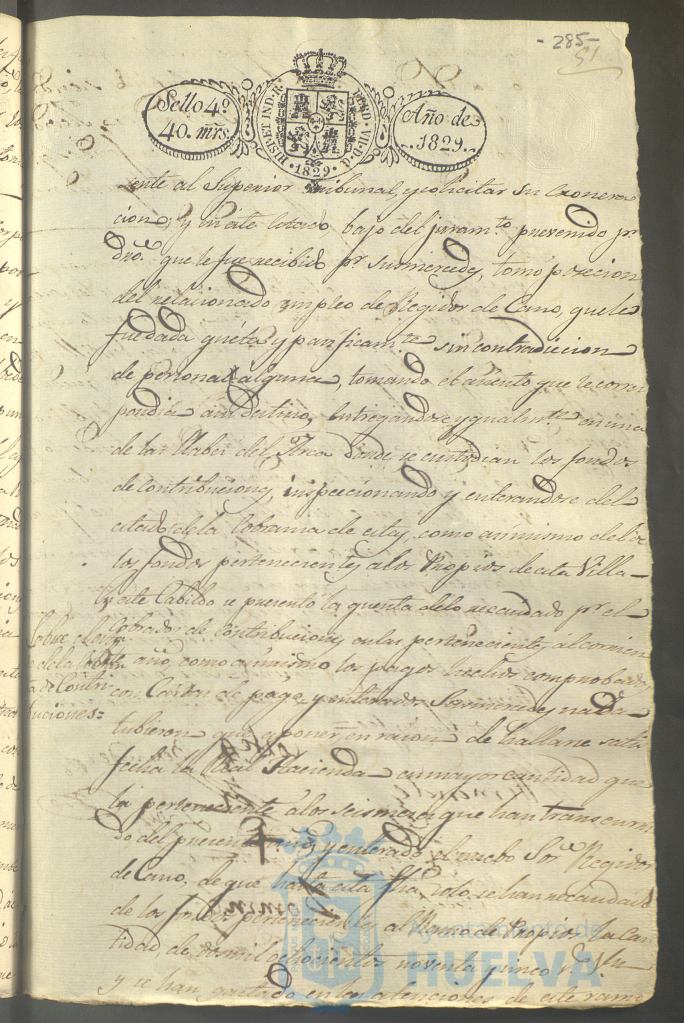 -285-
51
Sello 4º
40. mrs.
HISP. ET IND. R.
FERD. VII. D. G.
1829.
Año de
1829.
ente al Superior Tribunal, y solicitar su exonera
cion; y en este estado bajo del juramto. prevenido pr.
dro. que le fue recibido pr. sus mercedes, tomó posecion
del relacionado empleo de Regidor de Cano, que le
fue dada quieta y pacificamte. sin contradicion
de persona alguna, tomando el asiento que le corres
pondia a su destino, entregandose ygualmte. en una
de las llabes del Arca donde se custodian los fondos
de Contribuciones, inspeccionando y enterandose del
estado de la Cobranza de estas, como asimismo de los
los fondos pertenecientes a los Propios de esta Villa
En este Cabildo se presentó la quenta de lo recaudado pr. el
Cobrador de Contribuciones en las pertenecientes al corrien
te año, como asimismo los pagos hechos comprobados
con Cartas de pago, y enterados Sus mercedes nada
tubieron que exponer en razon de hallarse satis
fecha la Real Hacienda en mayor cantidad que
la perteneciente a los seis meses que han transcurri
do del presente año; y enterado el nuebo Sor. Regidor
de Cano, de que hasta esta fha. solo se han recaudado
de los fondos pertenecientes al Ramo de Propios la can
tidad de dos mil ochocientos noventa y cinco rs.
y se han gastado en las atenciones de este ramo
Sobre el
de la
de Contri
buciones=
Ayuntamiento de
HUELVA